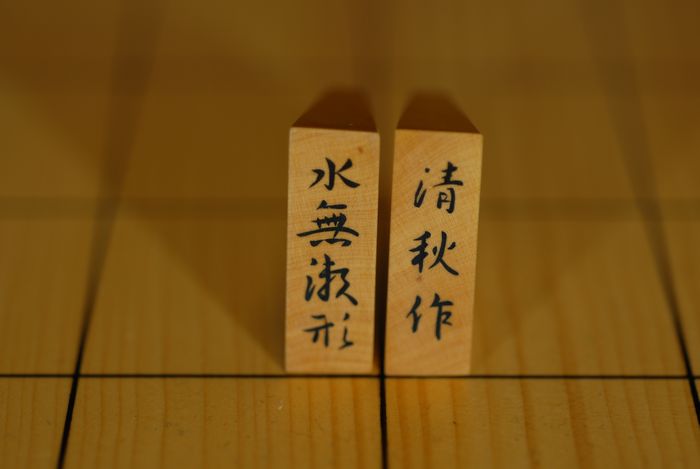 水無瀬形
清秋作